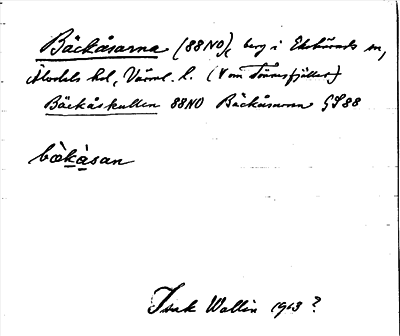 Bäckåsarna (88NO), berg i Ekshärads sn,
Älvdals hd, Värml. l. (V om Tönnesfjället)
Bäckåskullen 88NO Bäckåsarna GS88
bὰkåsan
Isak Wallin 1913 ?